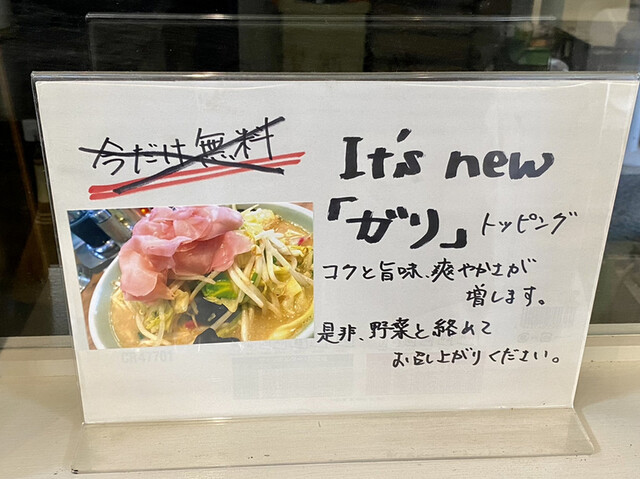 今だけ無料
It's new
「ガリ」トッピング
コクと旨味、爽やかさが
増します。
是非、野菜と絡めて
お召し上がりください。